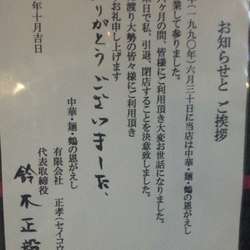 お知らせと ご挨拶
(一九九〇)年六月三十日に当店は中華・麺・鶴の恩がえし
業して参りました。
六ヶ月の間、皆様にご利用頂き大変お世話になりました。
末日で私、引退、閉店することを決意致しました。
渡り大勢の皆々様にご利用頂き
お礼申し上げます
りがとうございました。
年十月吉日
中華・麺・鶴の恩がえし
有限会社 正孝(セイコウ
代表取締役
鈴木正